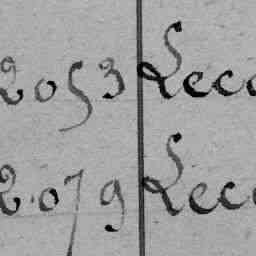 2053 Leco
2079 Lec